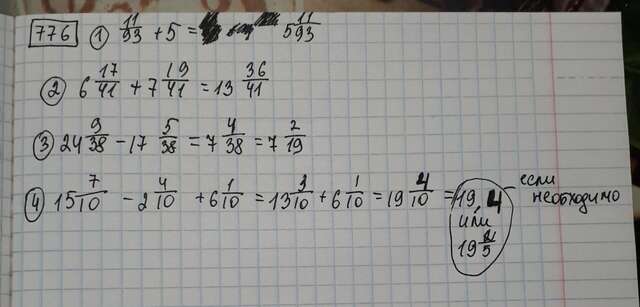 776 1) 11/93 + 5 = 5 11/93
2) 6 17/41 + 7 19/41 = 13 36/41
3) 24 9/38 - 17 5/38 = 7 4/38 = 7 2/19
4) 15 7/10 - 2 4/10 + 6 1/10 = 13 3/10 + 6 1/10 = 19 4/10 = 19,4 если
необходимо
или
19 2/5